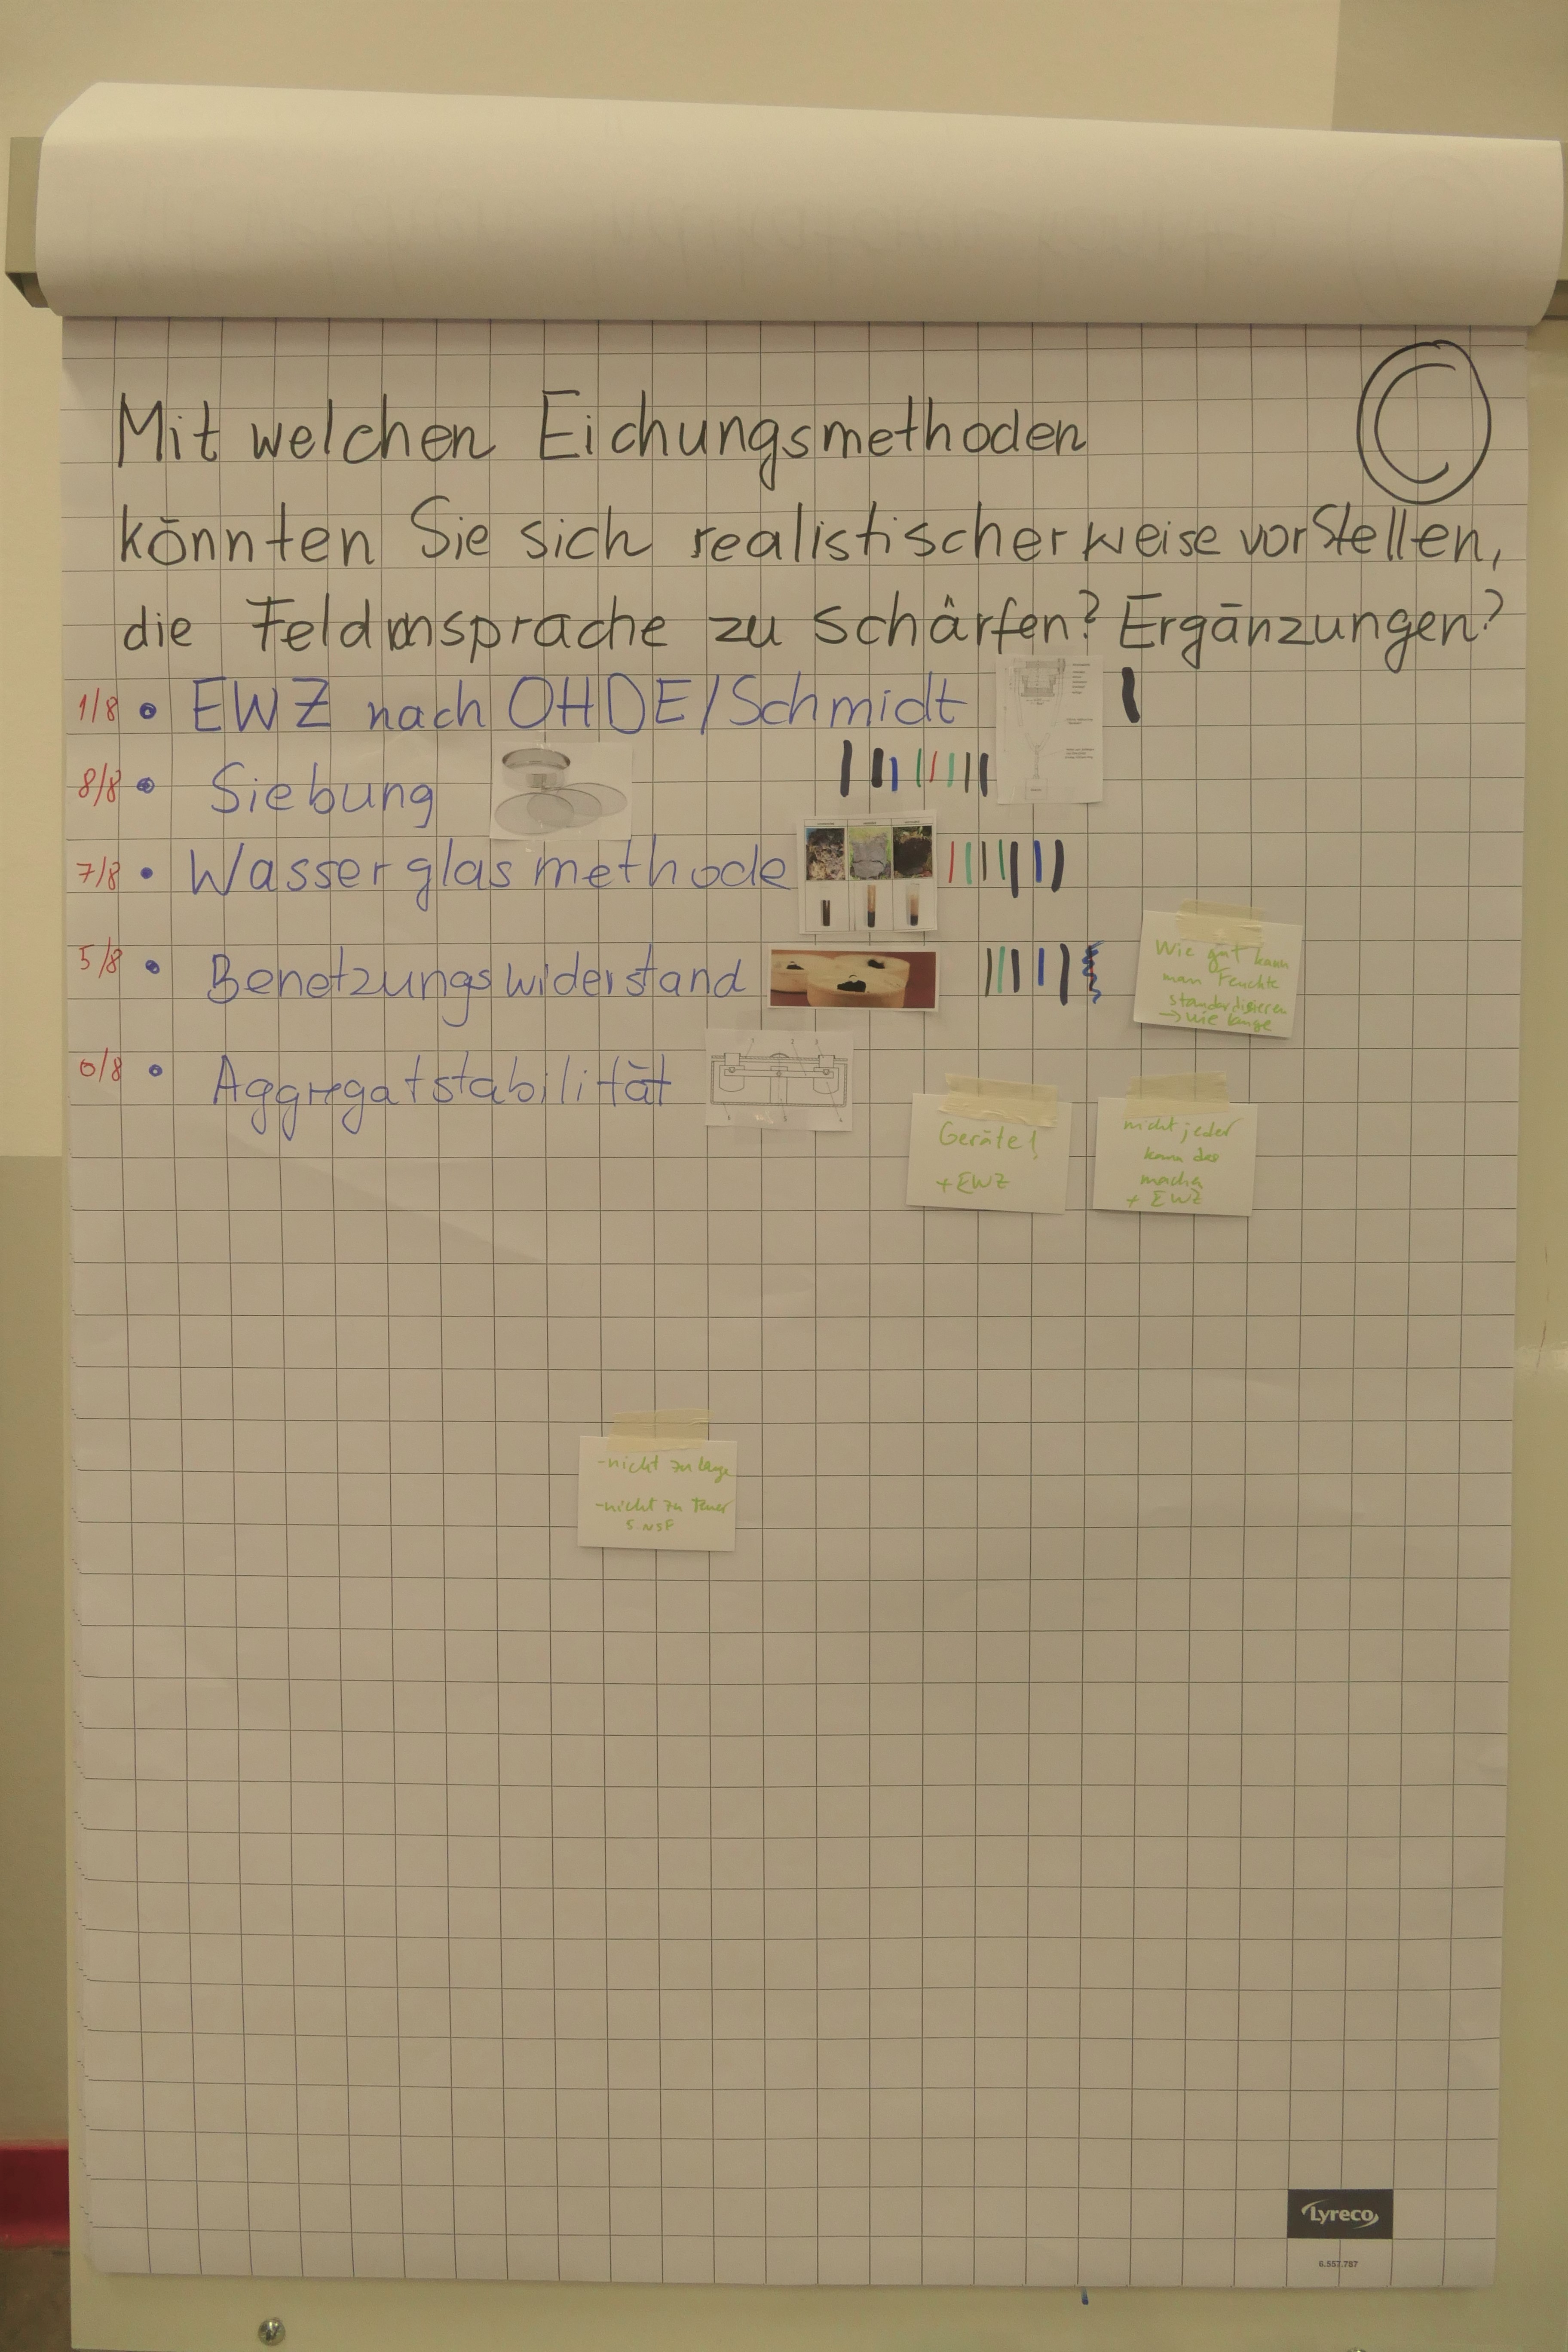 C
Mit welchen Eichungsmethoden
könnten Sie sich realistischerweise vorstellen,
die Feldansprache zu schärfen? Ergänzungen?
1/8 • EWZ nach OHDE/Schmidt
8/8 • Siebung
7/8 • Wasserglasmethode
5/8 • Benetzungswiderstand
Wie gut kann
man Feuchte
standardisieren
→ wie lange
0/8 • Aggregatstabilität
Geräte!
+ EWZ
nicht jeder
kann das
machen
+ EWZ
- nicht zu lange
- nicht zu teuer
Lyreco
6.557.787